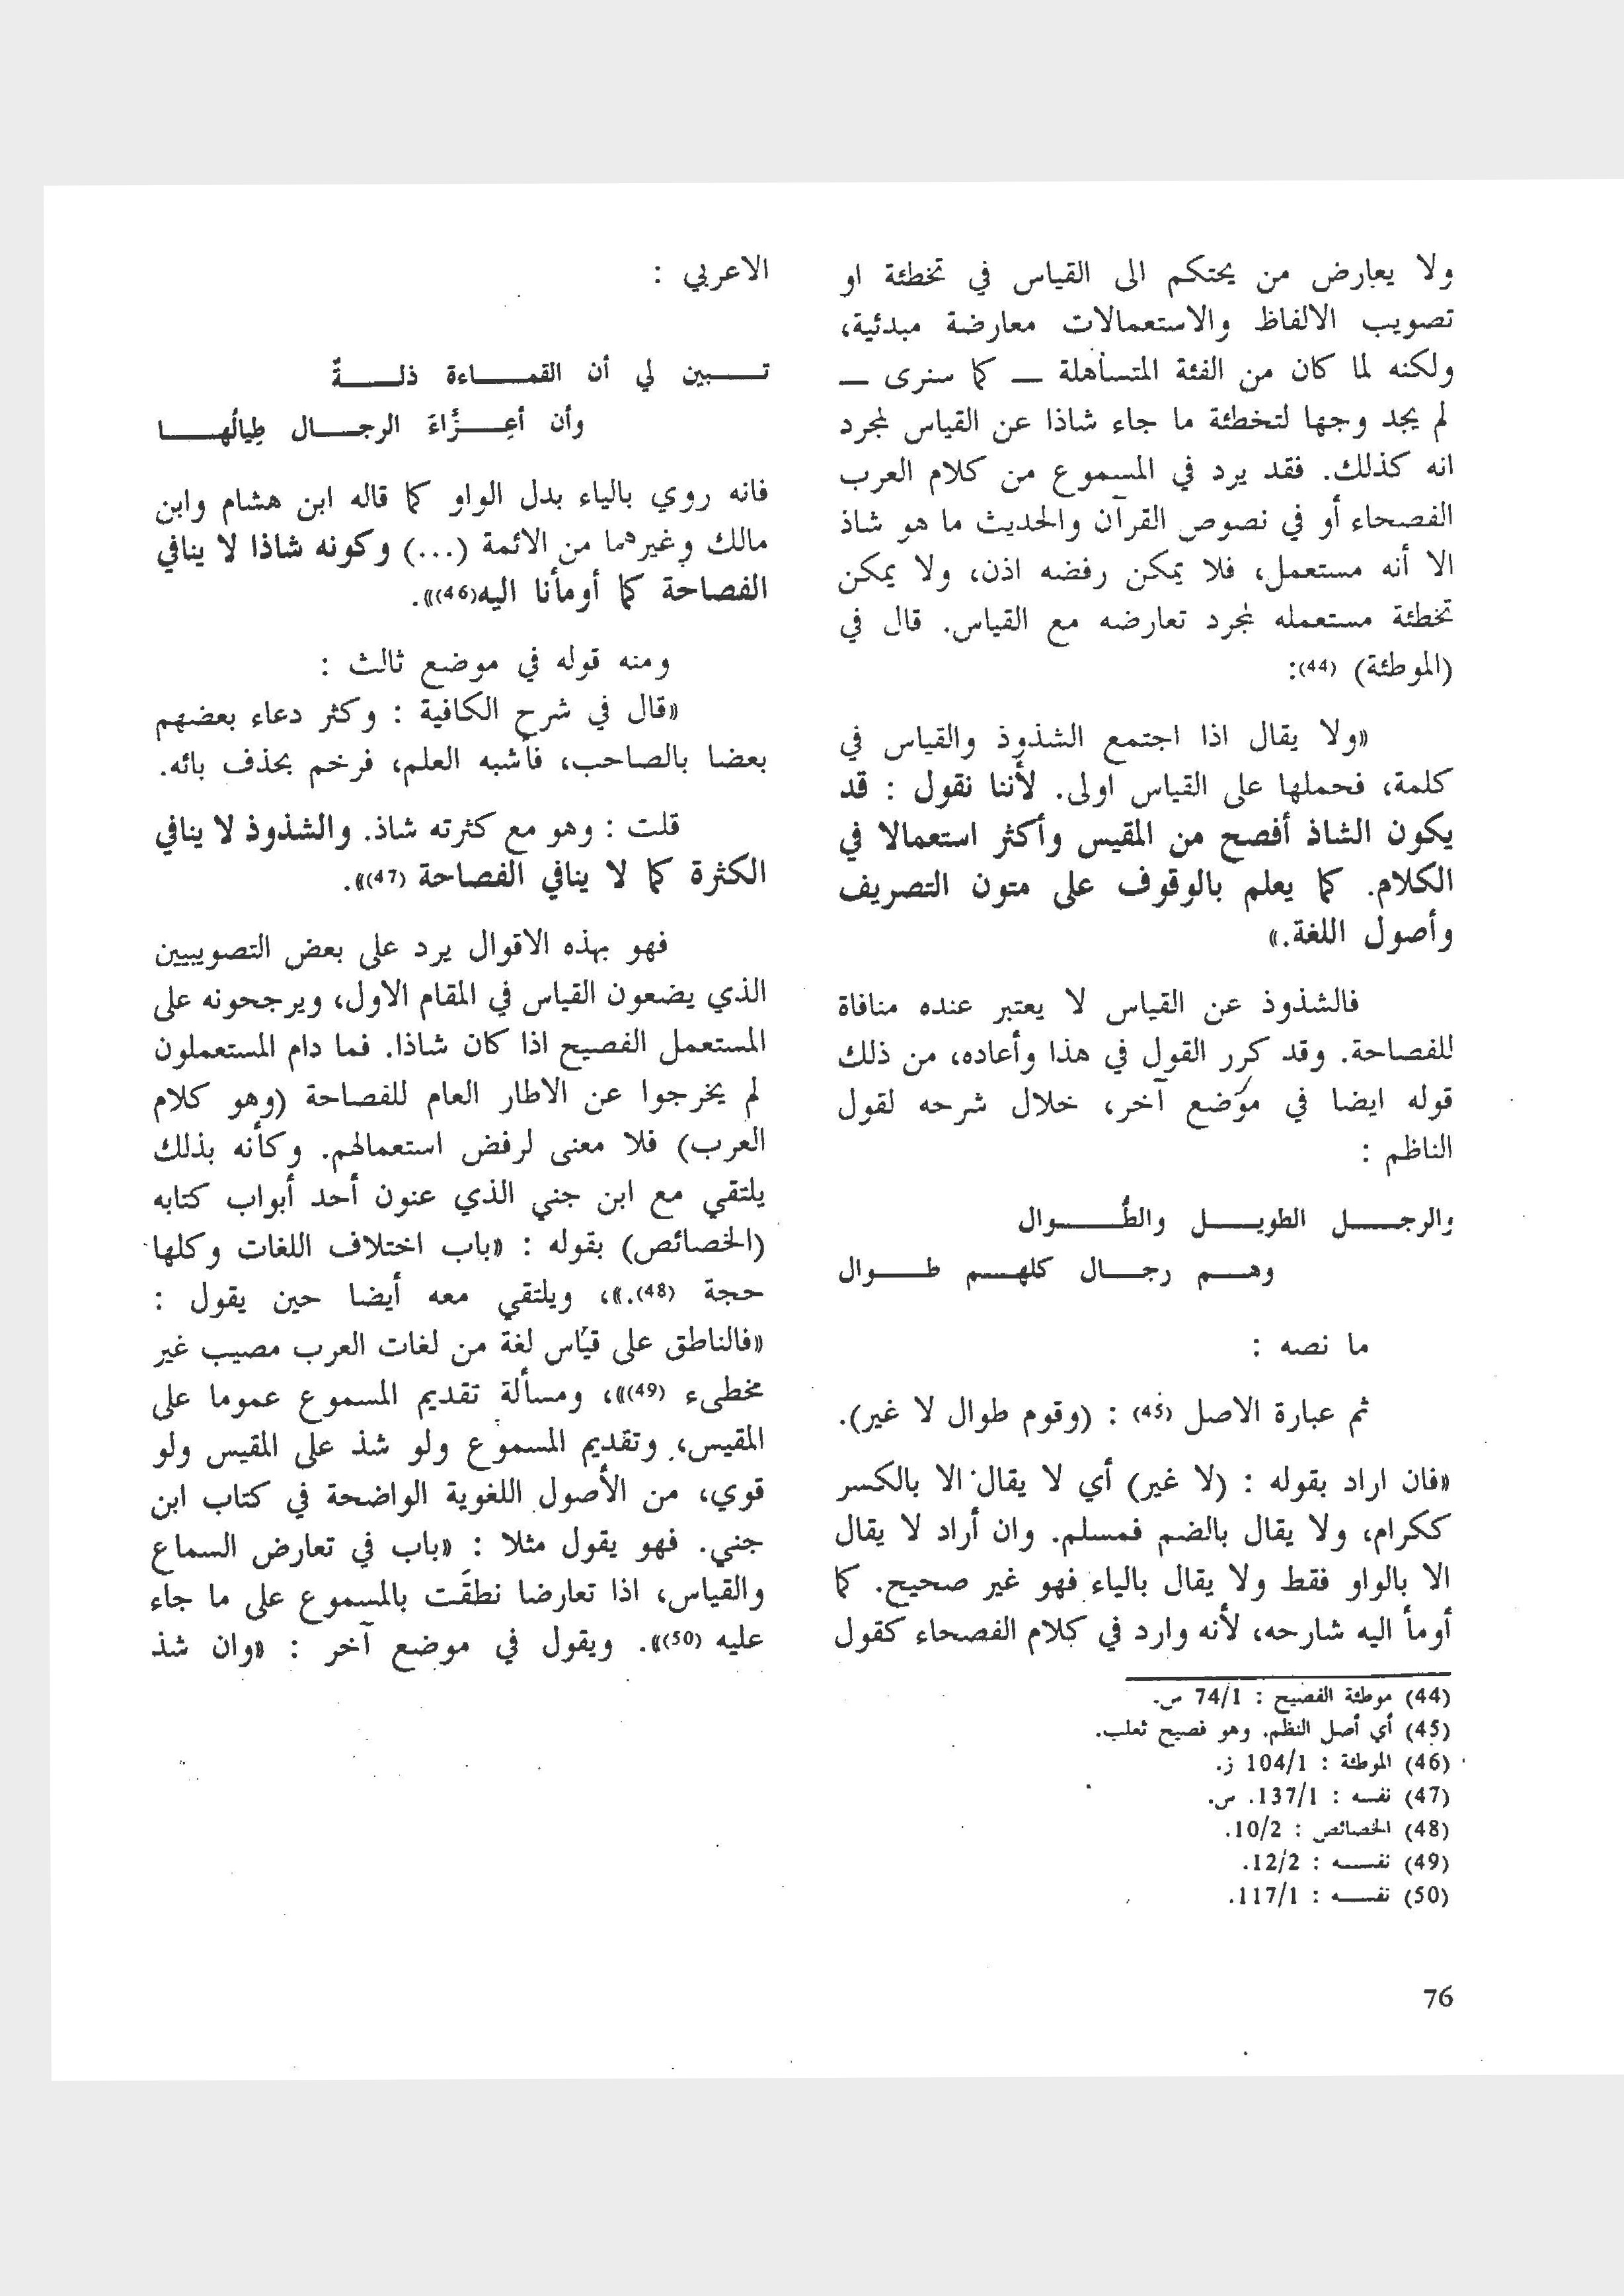 ولا يعارض من يحتكم الى القياس في تخطئة او
تصويب الالفاظ والاستعمالات معارضة مبدئية،
ولكنه لما كان من الفئة المتساهلة — كما سنرى —
لم يجد وجها لتخطئة ما جاء شاذا عن القياس لمجرد
انه كذلك. فقد يرد في المسموع من كلام العرب
الفصحاء أو في نصوص القرآن والحديث ما هو شاذ
الا أنه مستعمل، فلا يمكن رفضه اذن، ولا يمكن
تخطئة مستعمله لمجرد تعارضه مع القياس. قال في
(الموطئة) (44):
«ولا يقال اذا اجتمع الشذوذ والقياس في
كلمة، فحملها على القياس اولى. لأننا نقول : قد
يكون الشاذ أفصح من المقيس وأكثر استعمالا في
الكلام. كما يعلم بالوقوف على متون التصريف
وأصول اللغة.»
فالشذوذ عن القياس لا يعتبر عنده منافاة
للفصاحة. وقد كرر القول في هذا وأعاده، من ذلك
قوله ايضا في موضع آخر، خلال شرحه لقول
الناظم :
والرجــل الطويــل والطُّــوال
وهــم رجــال كلهــم طــوال
ما نصه :
ثم عبارة الاصل (45) : (وقوم طوال لا غير).
«فان اراد بقوله : (لا غير) أي لا يقال الا بالكسر
ككرام، ولا يقال بالضم فمسلم. وان أراد لا يقال
الا بالواو فقط ولا يقال بالياء فهو غير صحيح. كما
أومأ اليه شارحه، لأنه وارد في كلام الفصحاء كقول
(44) موطئة الفصيح : 74/1 س.
(45) أي أصل النظم. وهو فصيح ثعلب.
(46) الموطئة : 104/1 ز.
(47) نفسه : 137/1. س.
(48) الخصائص : 10/2.
(49) نفســه : 12/2.
(50) نفســه : 117/1.
الاعربي :
تــبين لي أن القمــاءة ذلــةٌ
وأن أعِــزَّاءَ الرجــال طِيالُهــا
فانه روي بالياء بدل الواو كما قاله ابن هشام وابن
مالك وغيرهما من الائمة (...) وكونه شاذا لا ينافي
الفصاحة كما أومأنا اليه(46)».
ومنه قوله في موضع ثالث :
«قال في شرح الكافية : وكثر دعاء بعضهم
بعضا بالصاحب، فأشبه العلم، فرخم بحذف بائه.
قلت : وهو مع كثرته شاذ. والشذوذ لا ينافي
الكثرة كما لا ينافي الفصاحة (47)».
فهو بهذه الاقوال يرد على بعض التصويبيين
الذي يضعون القياس في المقام الاول، ويرجحونه على
المستعمل الفصيح اذا كان شاذا. فما دام المستعملون
لم يخرجوا عن الاطار العام للفصاحة (وهو كلام
العرب) فلا معنى لرفض استعمالهم. وكأنه بذلك
يلتقي مع ابن جني الذي عنون أحد أبواب كتابه
(الخصائص) بقوله : «باب اختلاف اللغات وكلها
حجة (48).»، ويلتقي معه أيضا حين يقول :
«فالناطق على قياس لغة من لغات العرب مصيب غير
مخطىء (49)»، ومسألة تقديم المسموع عموما على
المقيس، وتقديم المسموع ولو شذ على المقيس ولو
قوي، من الأصول اللغوية الواضحة في كتاب ابن
جني. فهو يقول مثلا : «باب في تعارض السماع
والقياس، اذا تعارضا نطقَت بالمسموع على ما جاء
عليه (50)». ويقول في موضع آخر : «وان شذ
76